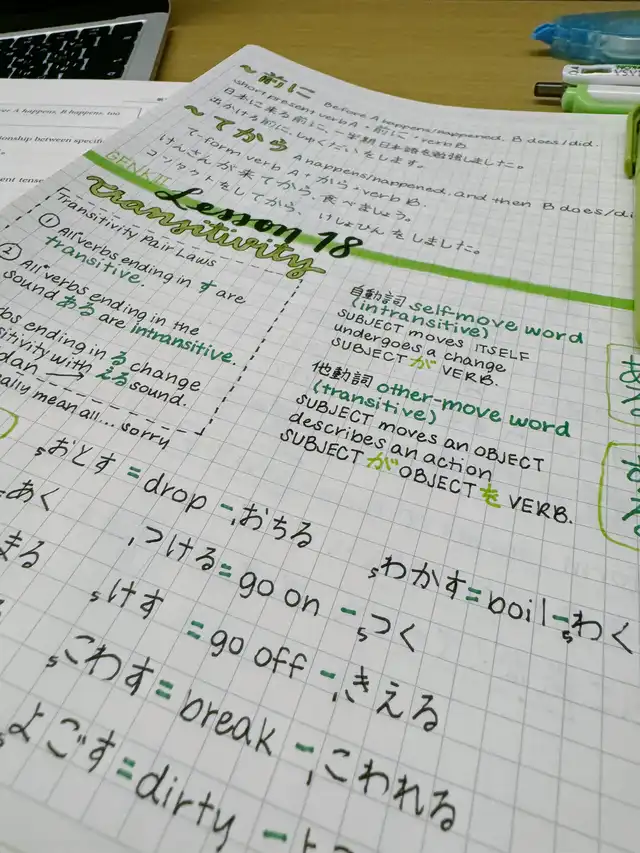 ~前に
Before A happens/happened, B does/did.
short present verb A + 前に + verb B
日本に来る前に、一学期日本語を勉強しました。
出かける前に、しゅくだいをします。
~てから
A happens/happened, and then B does/di
て-form verb A + から + verb B.
けんさんが来てから、食べましょう。
コンタクトをしてから、けしょひんをしました。
GENKI II
Lesson 18
transitivity
Transitivity Pair Laws
① All verbs ending in す are
transitive.
② All verbs ending in the
sound ある are intransitive.
bs ending in る change
sitivity with
dan → える sound.
ally mean all... sorry
自動詞 self-move word
(intransitive)
SUBJECT moves ITSELF
undergoes a change
SUBJECT が VERB.
他動詞 other-move word
(transitive)
SUBJECT moves an OBJECT
describes an action
SUBJECT が OBJECT を VERB.
おとす = drop - おちる
あく
つける = go on - つく
わかす = boil - わく
まる
けす = go off - きえる
こわす = break - こわれる
よごす = dirty -
A happens, B happens, too
onship between specifi
ent tense